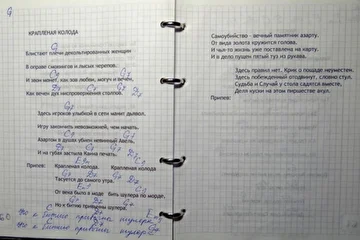 КРАПЛЕНАЯ КОЛОДА
Блистают плечи декольтированных женщин
В оправе смокингов и лысых черепов.
И звон монет, как зов любви, могуч и вечен,
Как вечен дух ниспровержения столпов.
Здесь игроков улыбкой в сети манит дьявол.
Игру закончить невозможней, чем начать.
Азартом в душах убиен невинный Авель,
И на губах застыла Каина печать.
Припев: Крапленая колода. Крапленая колода
Тасуется до самого утра.
От века было в моде бить шулера по морде,
Но к битию привычны шулера.
Но к битию привычны шулера
Но к битию привычны шулера
Самоубийство - вечный памятник азарту.
От вида золота кружится голова.
И чья-то жизнь уже поставлена на карту,
И в дело пущен пятый туз из рукава.
Здесь правил нет. Крик о пощаде неуместен.
Здесь побежденный отодвинут, словно стул.
Судьба и Случай у стола садятся вместе,
Деля куски на этом пиршестве акул.
Припев: